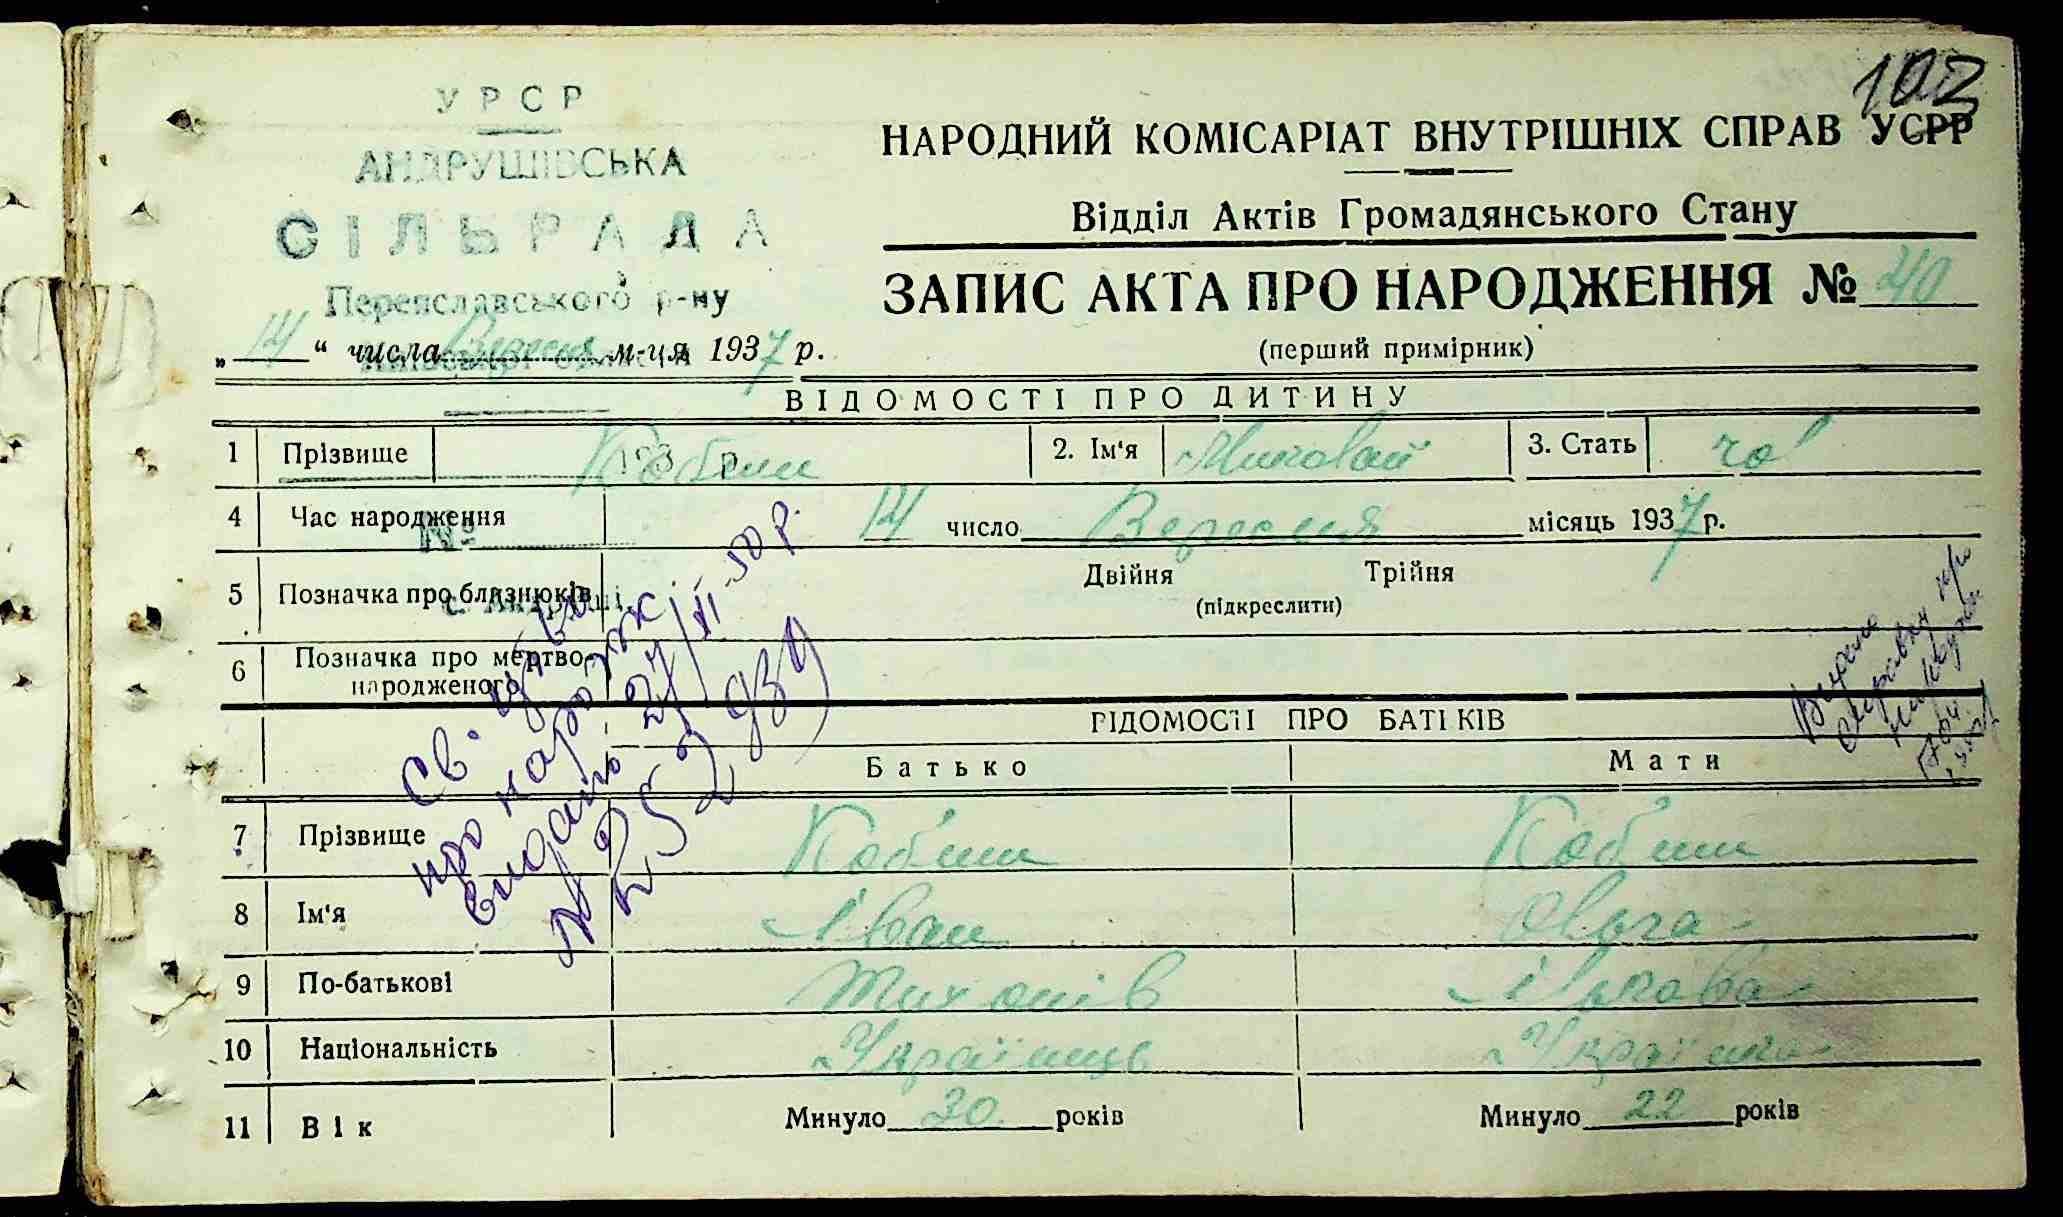 102
УРСР
АНДРУШІВСЬКА
СІЛЬРАДА
Переяславського р-ну
„14“ числа Вересня м-ця 1937 р.
НАРОДНИЙ КОМІСАРІАТ ВНУТРІШНІХ СПРАВ УСРР
Відділ Актів Громадянського Стану
ЗАПИС АКТА ПРО НАРОДЖЕННЯ № 40
(перший примірник)
ВІДОМОСТІ ПРО ДИТИНУ
1 Прізвище Кобзи 2. Ім'я Миколай 3. Стать чол
193 р.
4 Час народження 14 число Вересня місяць 1937 р.
№
5 Позначка про близнюків Двійня Трійня
(підкреслити)
с. Андруші
6 Позначка про мертво-
народженого
Свідутво
про народж
видано 27/XI-50 р.
№ 252939
Видана
справка про
ВІДОМОСТІ ПРО БАТЬКІВ
Батько Мати
7 Прізвище Кобзи Кобзи
8 Ім'я Іван Ольга
9 По-батькові Тихонів Ількова
10 Національність Українець Українка
11 Вік Минуло 30 років Минуло 22 років